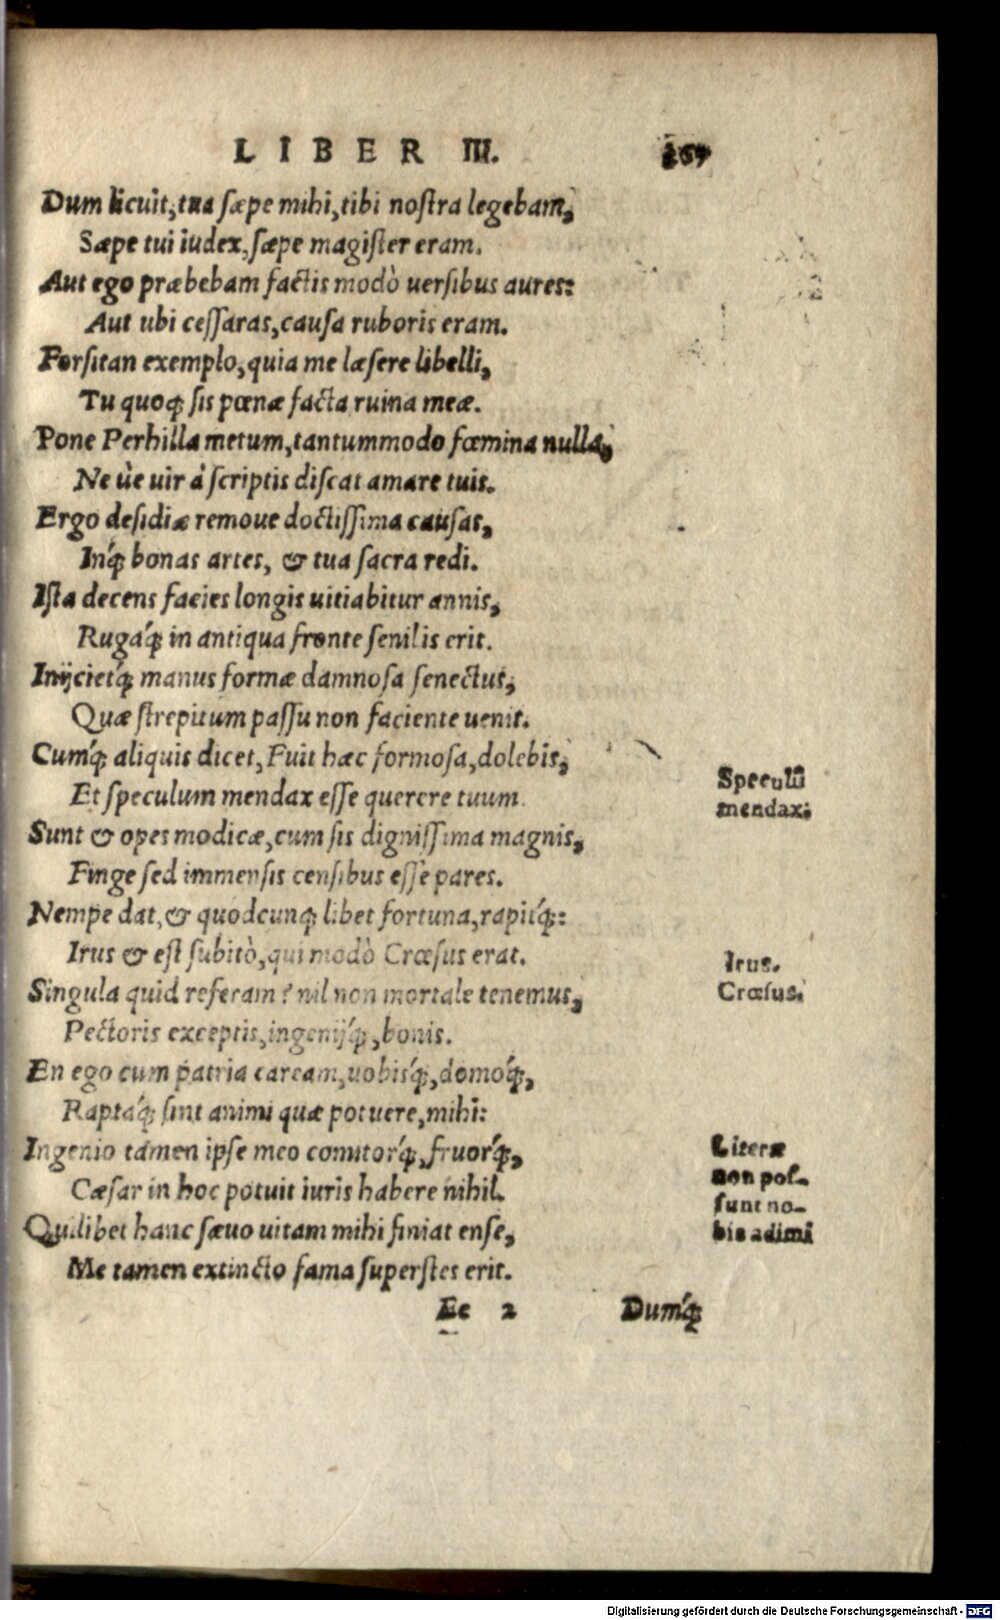 LIBER III.
Dum licuit, tua sæpe mihi, tibi nostra legebam,
Sæpe tui iudex, sæpe magister eram.
Aut ego præbebam factis modò uersibus aures:
Aut ubi cessaras, causa ruboris eram.
Forsitan exemplo, quia me læsere libelli,
Tu quoq; sis pœnæ facta ruina meæ.
Pone Perhilla metum, tantummodo fœmina nulla,
Ne ùe uir à scriptis discat amare tuis.
Ergo desidiæ remoue doctissima causas,
Inq́; bonas artes, & tua sacra redi.
Ista decens facies longis uitiabitur annis,
Rugáq; in antiqua fronte senilis erit.
Inijcietq́; manus formæ damnosa senectus,
Quæ strepitum passu non faciente uenit.
Cumq́; aliquis dicet, Fuit hæc formosa, dolebis,
Et speculum mendax esse querere tuum.
Speculū
mendax:
Sunt & opes modicæ, cum sis dignissima magnis,
Finge sed immensis censibus esse pares.
Nempe dat, & quodcunq; libet fortuna, rapitq́;:
Irus & est subitò, qui modò Crœsus erat.
Irus.
Crœsus.
Singula quid referam? nil non mortale tenemus,
Pectoris exceptis, ingenijq́;, bonis.
En ego cum patria caream, uobisq́;, domoq́;,
Raptáq; sint animi quæ potuere, mihi:
Ingenio tamen ipse meo comitorq́;, fruorq́;,
Cæsar in hoc potuit iuris habere nihil.
Literæ
non pos-
sunt no-
bis adimi
Quilibet hanc sæuo uitam mihi finiat ense,
Me tamen extincto fama superstes erit.
Ee 2 Dumq́;
Digitalisierung gefördert durch die Deutsche Forschungsgemeinschaft - DFG